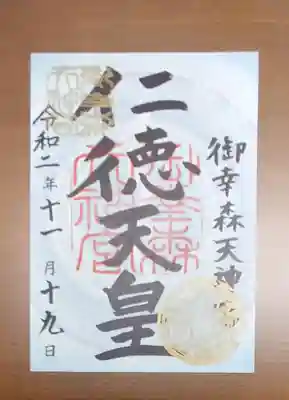 御幸森天神
仁徳天皇
令和二年十一月十九日